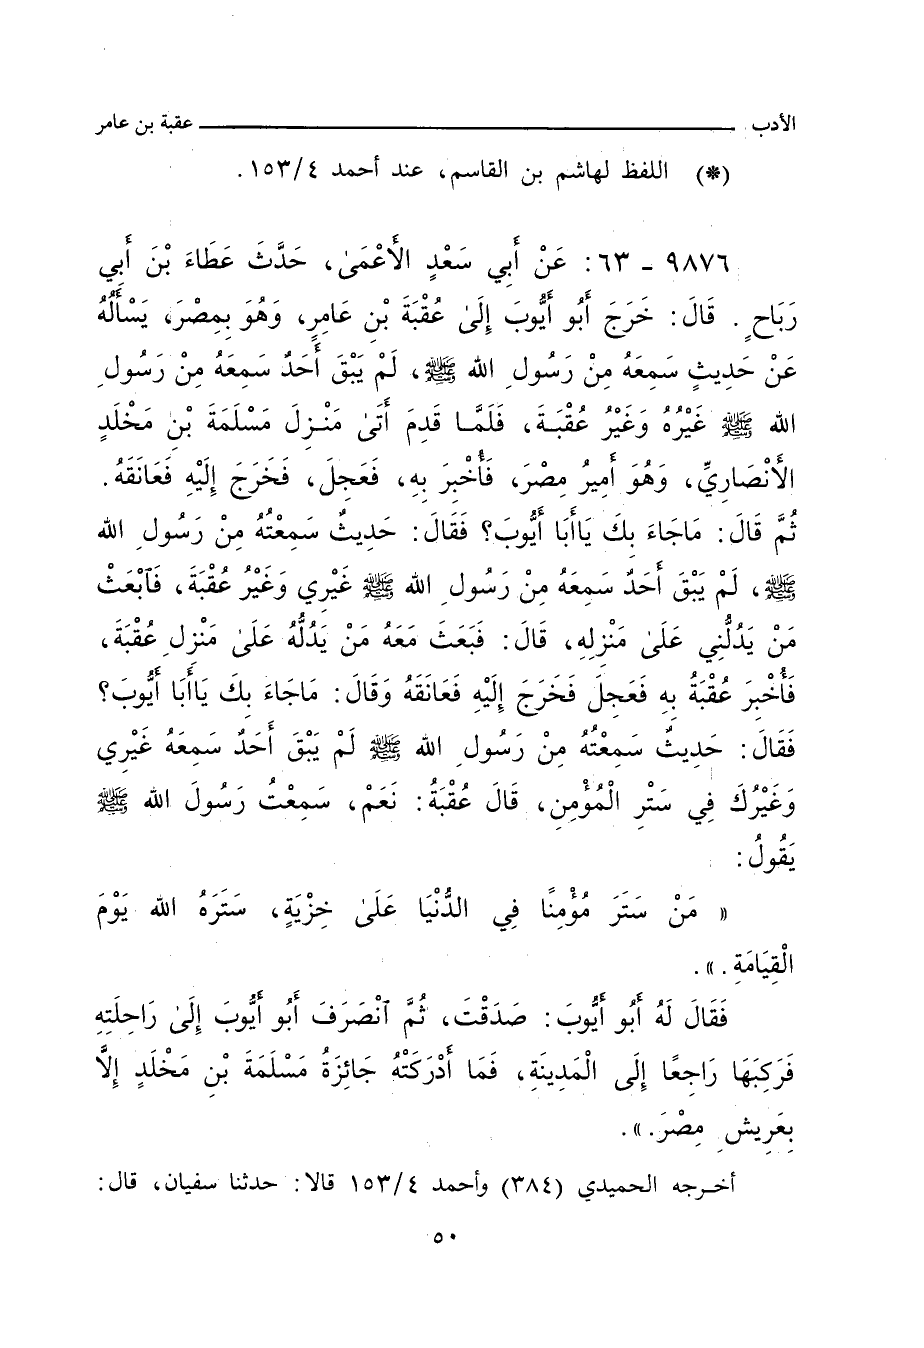 الأدب ـــــــــــــــــــــــــــــــــــــــــــــــــ عقبة بن عامر
(*) اللفظ لهاشم بن القاسم، عند أحمد ١٥٣/٤.
٩٨٧٦ ـ ٦٣: عَنْ أَبِي سَعْدٍ الأَعْمَىٰ، حَدَّثَ عَطَاءَ بْنَ أَبِي
رَبَاحٍ. قَالَ: خَرَجَ أَبُو أَيُّوبَ إِلَىٰ عُقْبَةَ بْنِ عَامِرٍ، وَهُوَ بِمِصْرَ، يَسْأَلُهُ
عَنْ حَدِيثٍ سَمِعَهُ مِنْ رَسُولِ الله ﷺ، لَمْ يَبْقَ أَحَدٌ سَمِعَهُ مِنْ رَسُولِ
الله ﷺ غَيْرُهُ وَغَيْرُ عُقْبَةَ، فَلَمَّا قَدِمَ أَتَىٰ مَنْزِلَ مَسْلَمَةَ بْنِ مَخْلَدٍ
الأَنْصَارِيِّ، وَهُوَ أَمِيرُ مِصْرَ، فَأُخْبِرَ بِهِ، فَعَجِلَ، فَخَرَجَ إِلَيْهِ فَعَانَقَهُ.
ثُمَّ قَالَ: مَاجَاءَ بِكَ يَاأَبَا أَيُّوبَ؟ فَقَالَ: حَدِيثٌ سَمِعْتُهُ مِنْ رَسُولِ الله
ﷺ، لَمْ يَبْقَ أَحَدٌ سَمِعَهُ مِنْ رَسُولِ الله ﷺ غَيْرِي وَغَيْرُ عُقْبَةَ، فَٱبْعَثْ
مَنْ يَدُلُّنِي عَلَىٰ مَنْزِلِهِ، قَالَ: فَبَعَثَ مَعَهُ مَنْ يَدُلُّهُ عَلَىٰ مَنْزِلِ عُقْبَةَ،
فَأُخْبِرَ عُقْبَةُ بِهِ فَعَجِلَ فَخَرَجَ إِلَيْهِ فَعَانَقَهُ وَقَالَ: مَاجَاءَ بِكَ يَاأَبَا أَيُّوبَ؟
فَقَالَ: حَدِيثٌ سَمِعْتُهُ مِنْ رَسُولِ الله ﷺ لَمْ يَبْقَ أَحَدٌ سَمِعَهُ غَيْرِي
وَغَيْرُكَ فِي سَتْرِ الْمُؤْمِنِ، قَالَ عُقْبَةُ: نَعَمْ، سَمِعْتُ رَسُولَ الله ﷺ
يَقُولُ:
« مَنْ سَتَرَ مُؤْمِنًا فِي الدُّنْيَا عَلَىٰ خِزْيَةٍ، سَتَرَهُ الله يَوْمَ
الْقِيَامَةِ.».
فَقَالَ لَهُ أَبُو أَيُّوبَ: صَدَقْتَ، ثُمَّ ٱنْصَرَفَ أَبُو أَيُّوبَ إِلَىٰ رَاحِلَتِهِ
فَرَكِبَهَا رَاجِعًا إِلَى الْمَدِينَةِ، فَمَا أَدْرَكَتْهُ جَائِزَةُ مَسْلَمَةَ بْنِ مَخْلَدٍ إِلاَّ
بِعَرِيشِ مِصْرَ.».
أخرجه الحميدي (٣٨٤) وأحمد ١٥٣/٤ قالا: حدثنا سفيان، قال:
٥٠